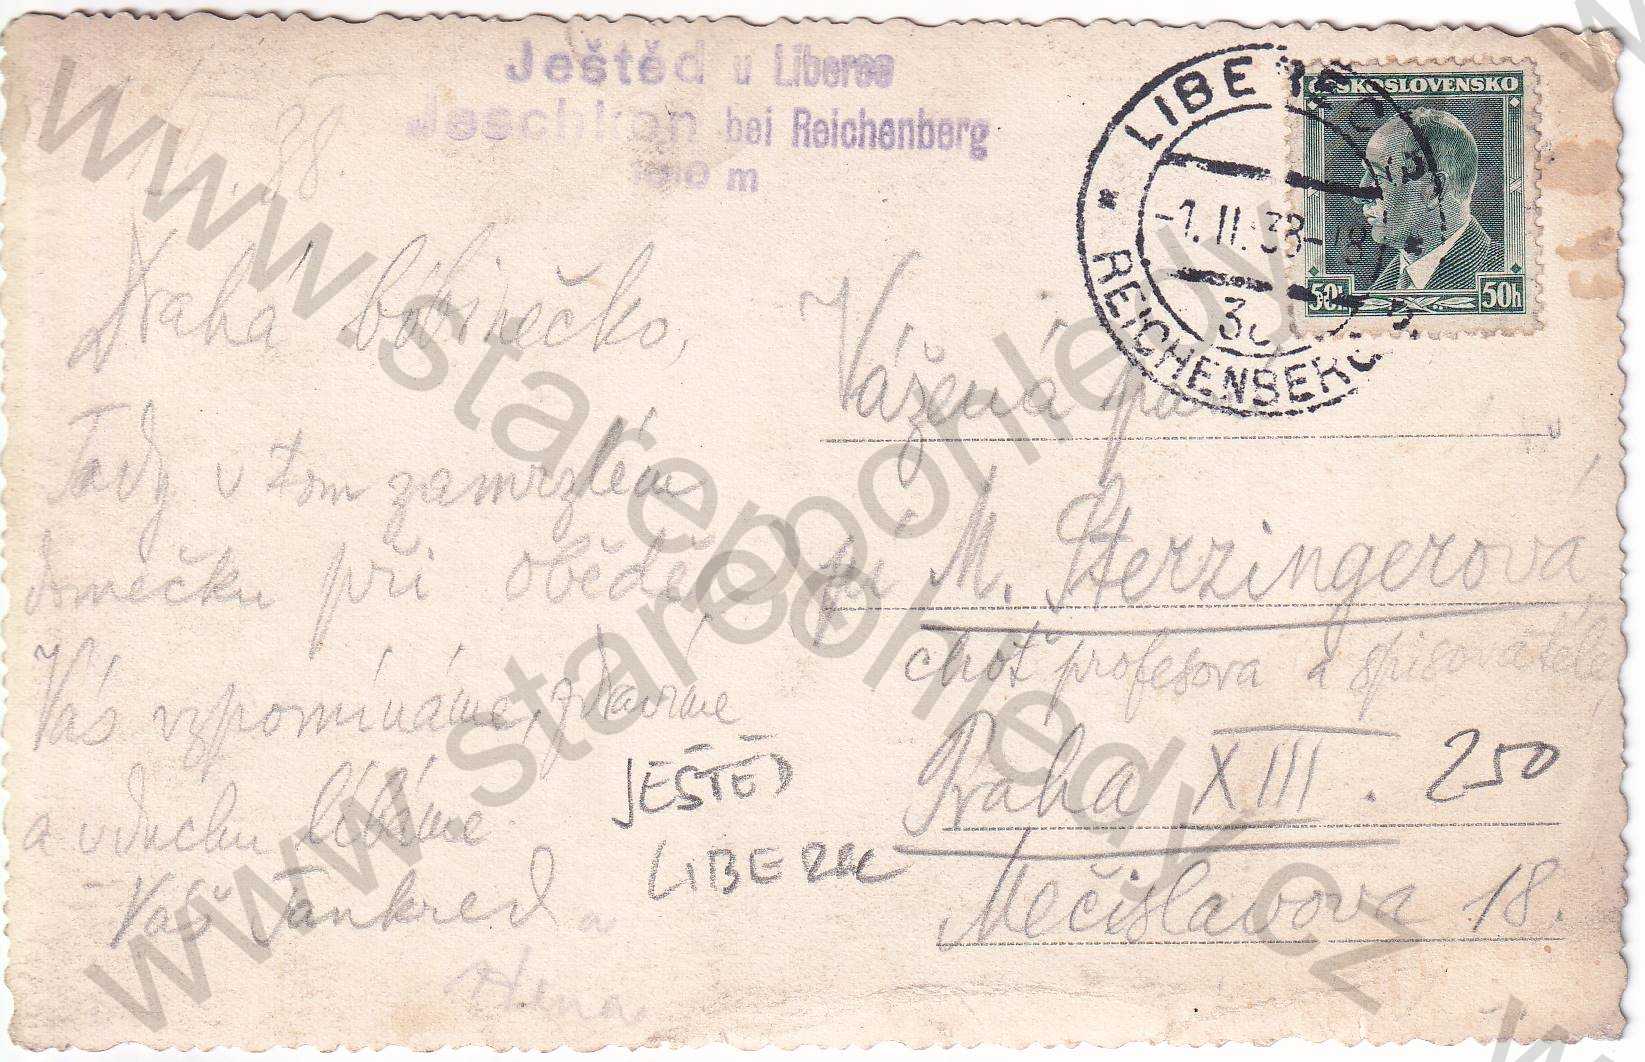 Ještěd u Liberce
Jeschken bei Reichenberg
1010 m
LIBEREC
REICHENBERG
-1.II.38-
ČESKOSLOVENSKO
50h 50h
38
Drahá babičko,
Tady v tom zamrzlém
domečku při obědě
Vás vzpomínáme, zdravíme
a v duchu líbáme
Váš Tankred a
Alena
Vážená paní
pí M. Sterzingerová
choť profesora a spisovatele
Praha XIII.
Mečislavova 18.
250
JEŠTĚD
LIBEREC
www.starepohledy.cz
www.starepohledy.cz